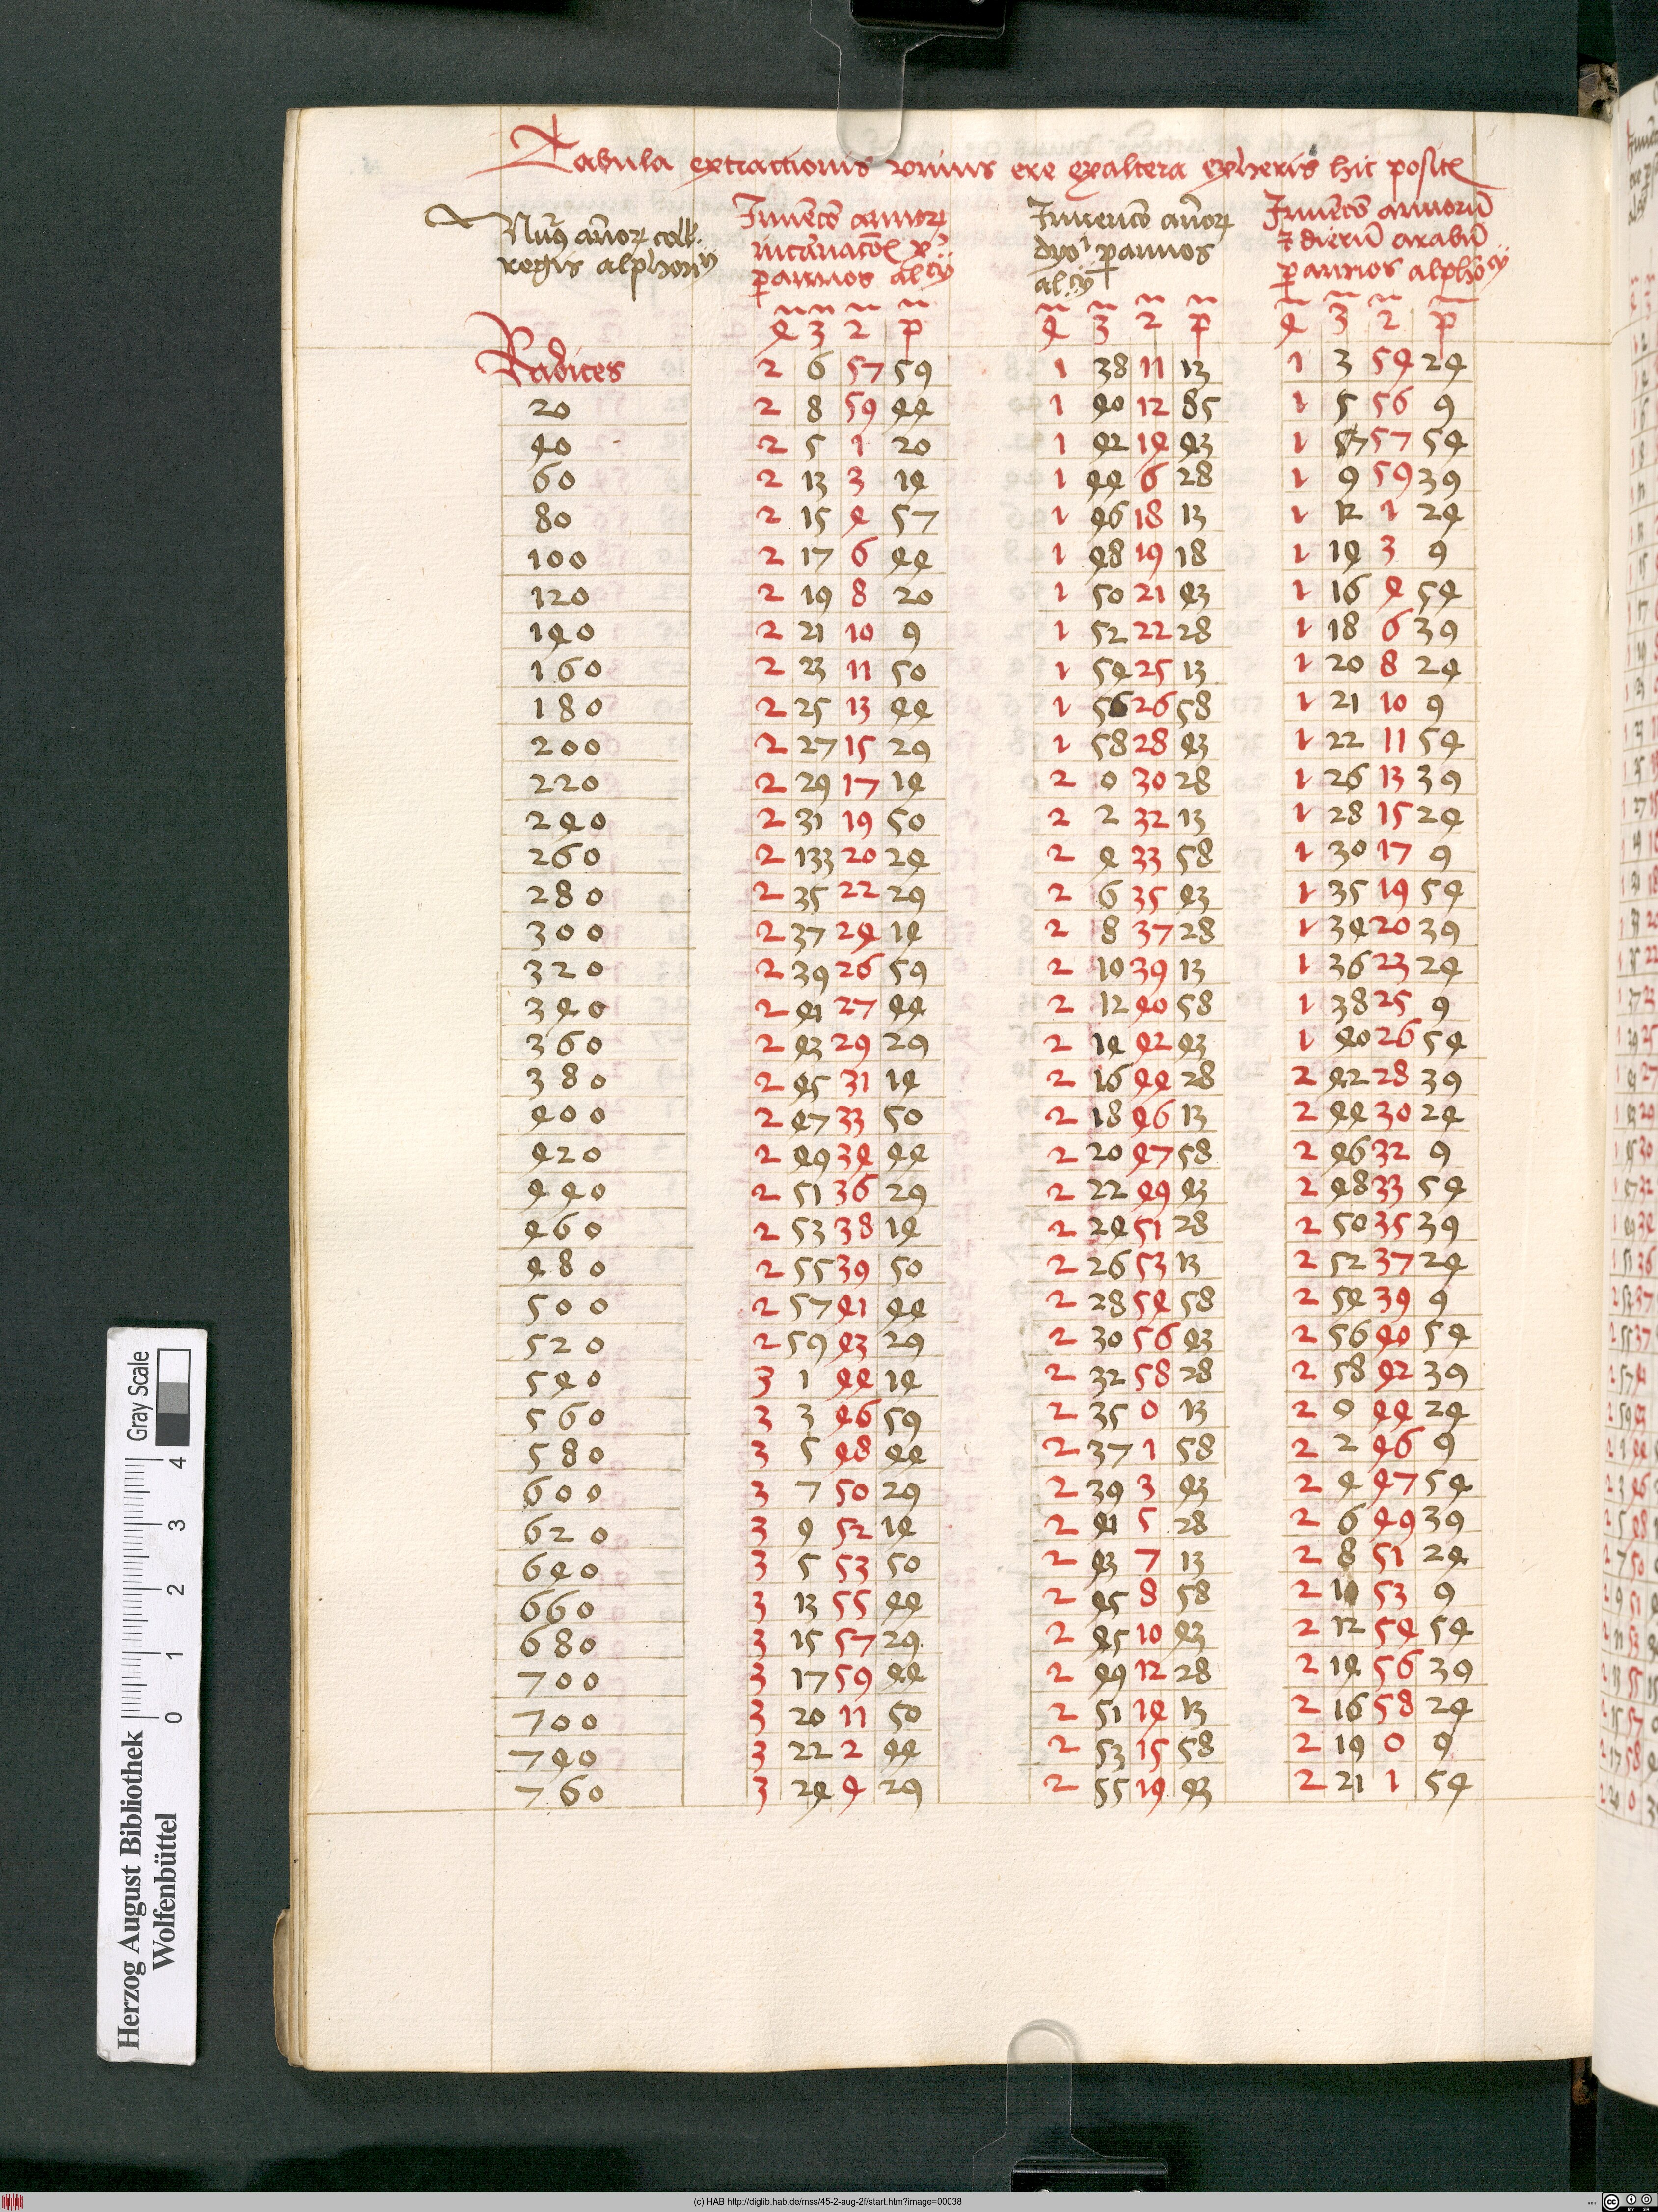 Tabula extractionis vnius ere exaltera exheris hic posite
Nu9 anor coll
regis alphonsy
Inuetio annor
incarnatois x
p annos al cy
Inuencio anor
dyo p annos
al cy
Inuetio annoru
z dieru arabu
p annos alphosy
4 3 2 p 4 3 2 p 4 3 2 p
Radices 2 6 57 59 1 38 11 13 1 3 54 24
20 2 8 59 44 1 40 12 85 1 5 56 9
40 2 5 1 20 1 42 14 43 1 57 57 54
60 2 13 3 14 1 44 6 28 1 9 59 39
80 2 15 4 57 1 46 18 13 1 12 1 24
100 2 17 6 44 1 48 19 18 1 14 3 9
120 2 19 8 20 1 50 21 43 1 16 4 54
140 2 21 10 9 1 52 22 28 1 18 6 39
160 2 23 11 50 1 54 25 13 1 20 8 24
180 2 25 13 44 1 56 26 58 1 21 10 9
200 2 27 15 29 1 58 28 43 1 22 11 54
220 2 29 17 14 2 0 30 28 1 26 13 39
240 2 31 19 50 2 2 32 13 1 28 15 24
260 2 133 20 24 2 4 33 58 1 30 17 9
280 2 35 22 29 2 6 35 43 1 35 19 54
300 2 37 24 14 2 8 37 28 1 34 20 39
320 2 39 26 59 2 10 39 13 1 36 23 24
340 2 41 27 44 2 12 40 58 1 38 25 9
360 2 43 29 29 2 14 42 43 1 40 26 54
380 2 45 31 14 2 16 44 28 2 42 28 39
400 2 47 33 50 2 18 46 13 2 44 30 24
420 2 49 34 44 2 20 47 58 2 46 32 9
440 2 51 36 29 2 22 49 43 2 48 33 54
460 2 53 38 14 2 24 51 28 2 50 35 39
480 2 55 39 50 2 26 53 13 2 52 37 24
500 2 57 41 44 2 28 54 58 2 54 39 9
520 2 59 43 29 2 30 56 43 2 56 40 54
540 3 1 44 14 2 32 58 28 2 58 42 39
560 3 3 46 59 2 35 0 13 2 0 44 24
580 3 5 48 44 2 37 1 58 2 2 46 9
600 3 7 50 29 2 39 3 43 2 4 47 54
620 3 9 52 14 2 41 5 28 2 6 49 39
640 3 5 53 50 2 43 7 13 2 8 51 24
660 3 13 55 44 2 45 8 58 2 10 53 9
680 3 15 57 29 2 45 10 43 2 12 54 54
700 3 17 59 44 2 49 12 28 2 14 56 39
700 3 20 11 50 2 51 14 13 2 16 58 24
740 3 22 2 44 2 53 15 58 2 19 0 9
760 3 24 4 29 2 55 19 43 2 21 1 54
Herzog August Bibliothek
Wolfenbüttel
0 1 2 3 4
Gray Scale
(c) HAB http://diglib.hab.de/mss/45-2-aug-2f/start.htm?image=00038